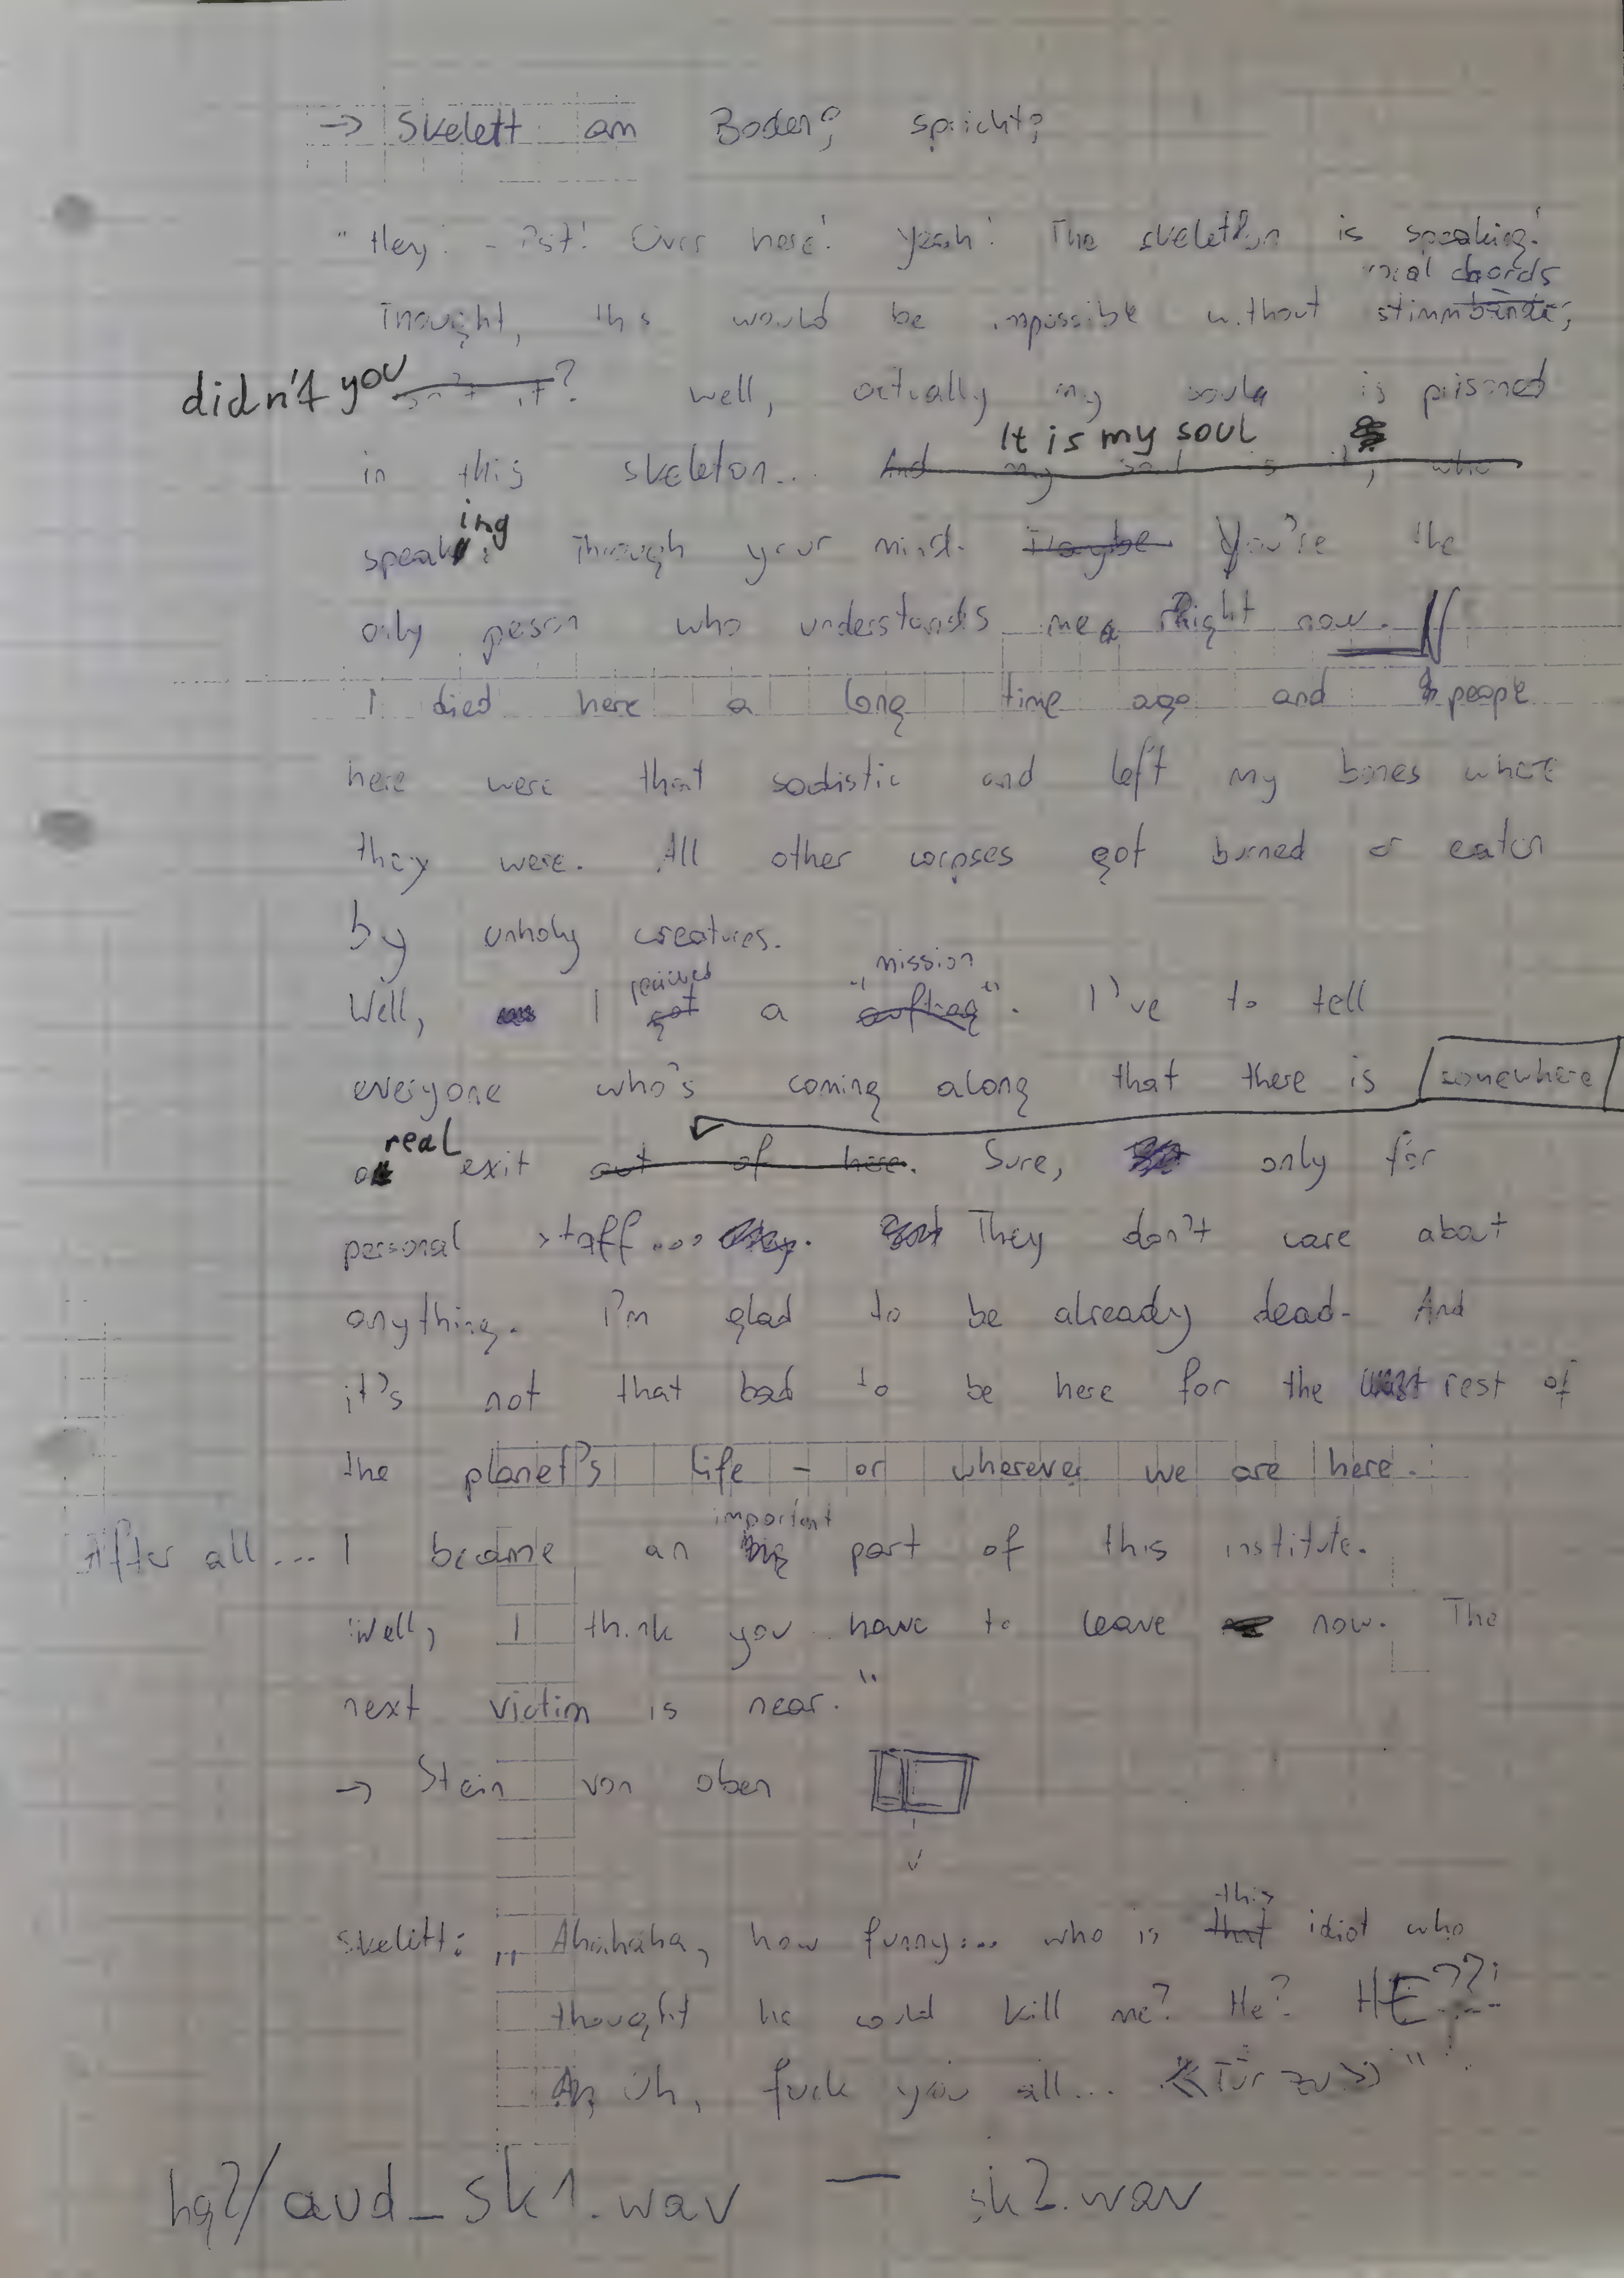 → Skelett am Boden; spricht;
"Hey! - Pst! Over here! Yeah! The skeletton is speaking!
vocal chords
Thought, this would be impossible without stimmbände,
didn't you ? Well, actually my soula is prisoned
It is my soul
in this skeleton... And my soul is it, who
speaking through your mind. Maybe You're the
only person who understands me Right now.
I died here a long time ago and people
here were that sadistic and left my bones where
they were. All other corpses got burned or eaten
by unholy creatures.
received "mission"
Well, I got a auftrag. I've to tell
everyone who's coming along that there is somewhere
real
a exit out of here. Sure, only for
personal staff... They don't care about
anything. I'm glad to be already dead. And
it's not that bad to be here for the rest of
the planet's life - or wherever we are here.
important
After all... I became an big part of this institute.
Well, I think you have to leave now. The
next victim is near."
→ Stein von oben
this
Skelett: „Ahahaha, how funny... who is that idiot who
thought he could kill me? He? HE???
Uh, fuck you all... «Tür zu»"
hq2/aud_sk1.wav — sk2.wav